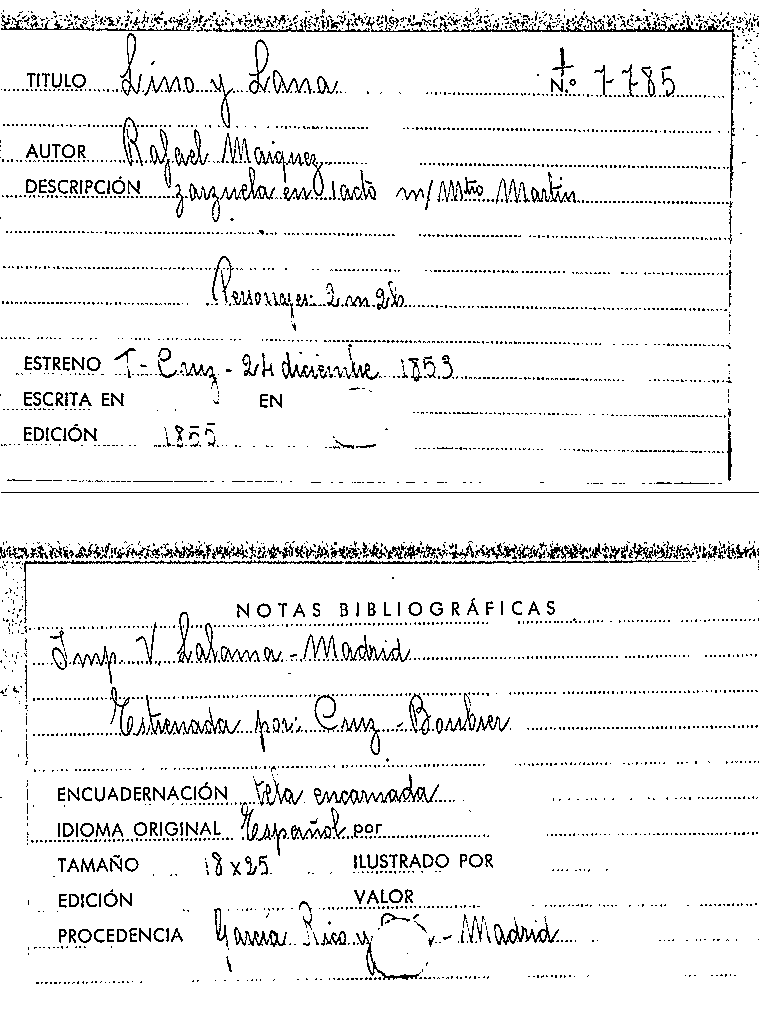 TITULO Lino y Lana N.º 7-785
AUTOR Rafael Maiquez
DESCRIPCIÓN zarzuela en 1 acto m/ Mtro Martin
Personajes: 2 m 2 h
ESTRENO T- Cruz - 24 diciembre 1853
ESCRITA EN EN
EDICIÓN 1855
NOTAS BIBLIOGRÁFICAS
Imp. V. Lalama - Madrid
Estrenada por: Cruz - Boubier
ENCUADERNACIÓN tela encarnada
IDIOMA ORIGINAL Español por
TAMAÑO 18 x 25 ILUSTRADO POR
EDICIÓN VALOR
PROCEDENCIA García Rico y - Madrid